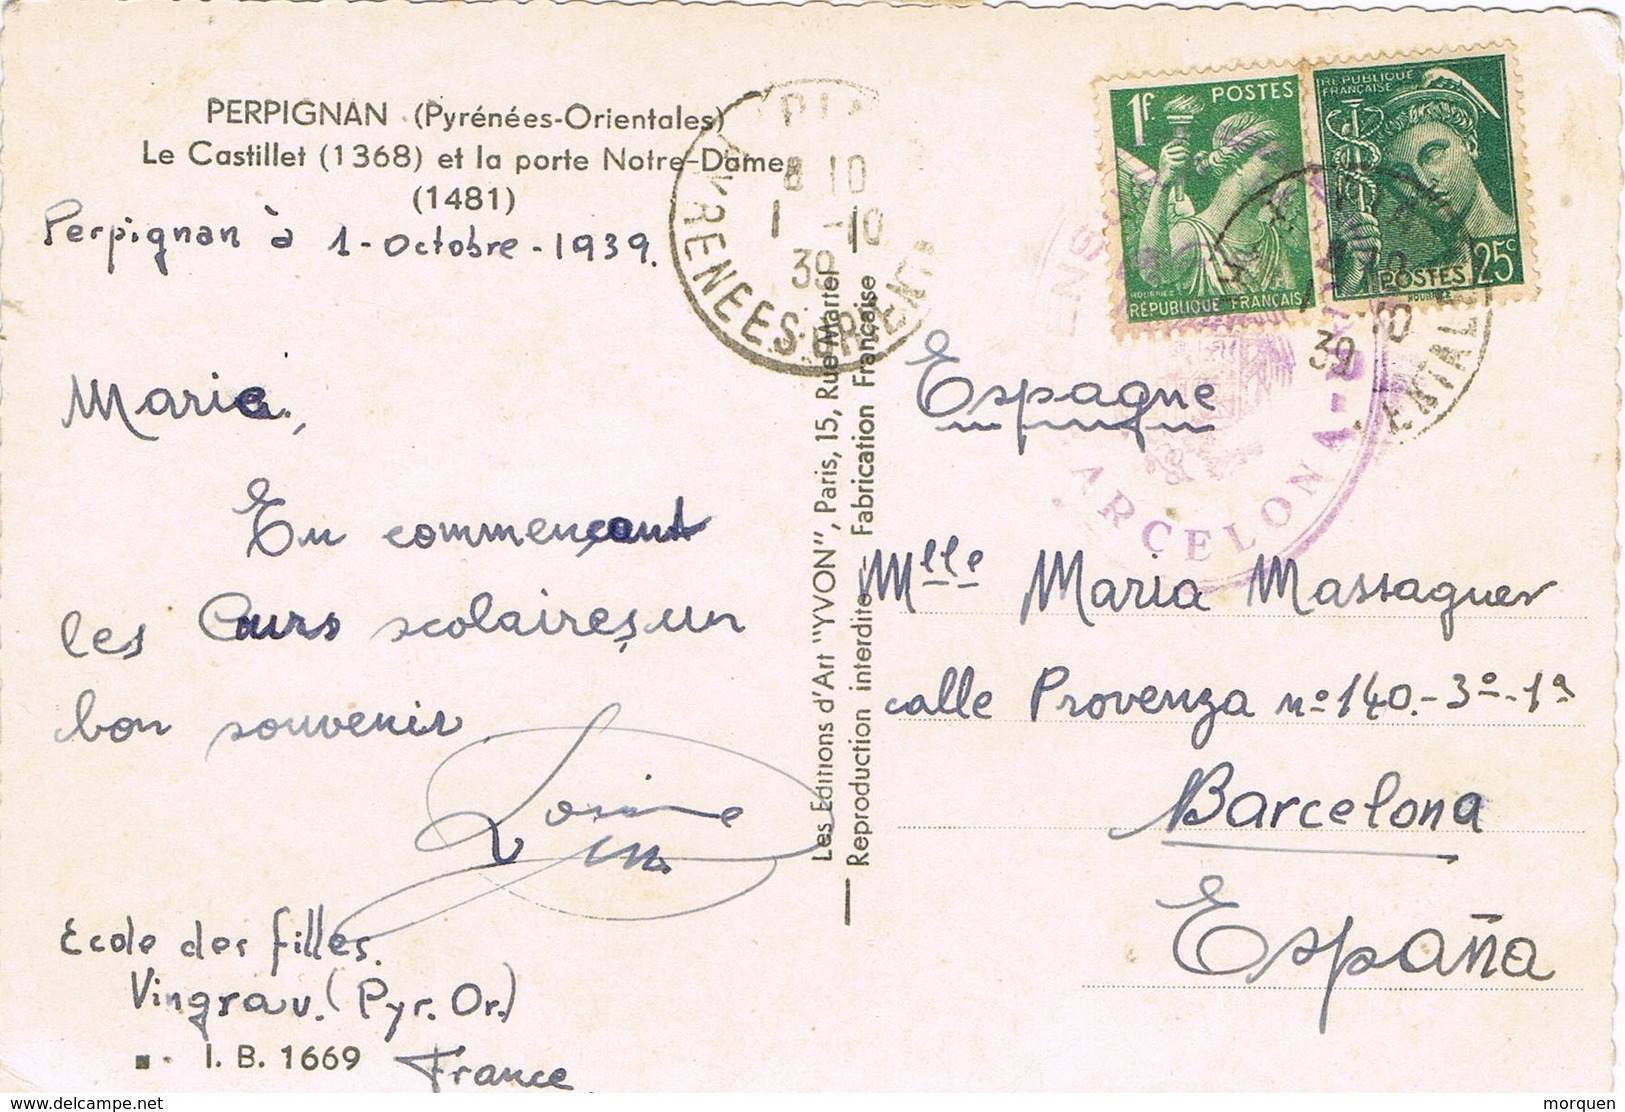 PERPIGNAN (Pyrénées-Orientales)
Le Castillet (1368) et la porte Notre-Dame
(1481)
Perpignan à 1-octobre-1939.
Maria,
En commençant
les Cours scolaires, un
bon souvenir
Ecole des filles.
Vingrau. (Pyr. Or.)
France
I. B. 1669
Les Editions d'Art "YVON", Paris, 15, Rue Martel
Reproduction interdite - Fabrication Française
8 10
1 -10
39
PYRENEES-ORIENT
1F.
POSTES
REPUBLIQUE FRANÇAISE
REPUBLIQUE
FRANÇAISE
POSTES
25c
10
39
ENTALES
BARCELONA
Espagne
Mlle Maria Massaguer
calle Provenza nº 140.-3º-1ª
Barcelona
España
delcampe.net
morquen